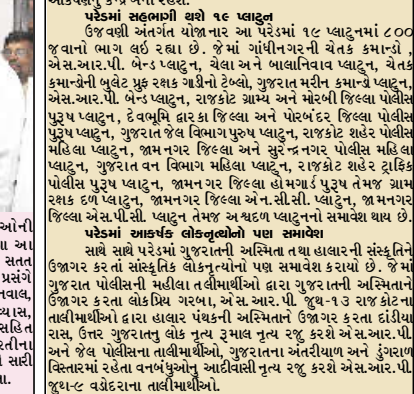 આકર્ષણનું કેન્દ્ર બની રહેશે.
પરેડમાં સહભાગી થશે ૧૯ પ્લાટુન
ઉજવણી અંતર્ગત યોજાનાર આ પરેડમાં ૧૯ પ્લાટુનમાં ૮૦૦
જવાનો ભાગ લઇ રહ્યા છે. જેમાં ગાંધીનગરની ચેતક કમાન્ડો ,
એસ.આર.પી. બેન્ડ પ્લાટુન, ચેલા અને બાલાનિવાવ પ્લાટુન, ચેતક
કમાન્ડોની બુલેટ પ્રુફ રક્ષક ગાડીનો ટેબ્લો, ગુજરાત મરીન કમાન્ડો પ્લાટુન,
એસ.આર.પી. બેન્ડ પ્લાટુન, રાજકોટ ગ્રામ્ય અને મોરબી જિલ્લા પોલીસ
પુરૂષ પ્લાટુન, દેવભૂમિ દ્વારકા જિલ્લા અને પોરબંદર જિલ્લા પોલીસ
પુરૂષ પ્લાટુન, ગુજરાત જેલ વિભાગ પુરુષ પ્લાટુન, રાજકોટ શહેર પોલીસ
મહિલા પ્લાટુન, જામનગર જિલ્લા અને સુરેન્દ્રનગર પોલીસ મહિલા
પ્લાટુન, ગુજરાત વન વિભાગ મહિલા પ્લાટુન, રાજકોટ શહેર ટ્રાફિક
પોલીસ પુરૂષ પ્લાટુન, જામનગર જિલ્લા હોમગાર્ડ પુરૂષ તેમજ ગ્રામ
રક્ષક દળ પ્લાટુન, જામનગર જિલ્લા એન.સી.સી. પ્લાટુન, જામનગર
જિલ્લા એસ.પી.સી. પ્લાટુન તેમજ અશ્વદળ પ્લાટુનનો સમાવેશ થાય છે.
પરેડમાં આકર્ષક લોકનૃત્યોનો પણ સમાવેશ
સાથે સાથે પરેડમાં ગુજરાતની અસ્મિતા તથા હાલારની સંસ્કૃતિને
ઉજાગર કરતાં સાંસ્કૃતિક લોકનૃત્યોનો પણ સમાવેશ કરાયો છે. જેમાં
ગુજરાત પોલીસની મહીલા તાલીમાર્થીઓ દ્વારા ગુજરાતની અસ્મિતાને
ઉજાગર કરતા લોકપ્રિય ગરબા, એસ.આર.પી. જૂથ-૧૩ રાજકોટના
તાલીમાર્થીઓ દ્વારા હાલાર પંથકની અસ્મિતાને ઉજાગર કરતા દાંડીયા
રાસ, ઉત્તર ગુજરાતનુ લોક નૃત્ય રૂમાલ નૃત્ય રજુ કરશે એસ.આર.પી.
અને જેલ પોલીસના તાલીમાર્થીઓ, ગુજરાતના અંતરીયાળ અને ડુંગરાળ
વિસ્તારમાં રહેતા વનબંધુઓનુ આદીવાસી નૃત્ય રજુ કરશે એસ.આર.પી.
જૂથ-૯ વડોદરાના તાલીમાર્થીઓ.
ઓની
ા આ
સતત
પ્રસંગે
નવાલ,
વ્યાસ,
સહિત
રતીના
સારી